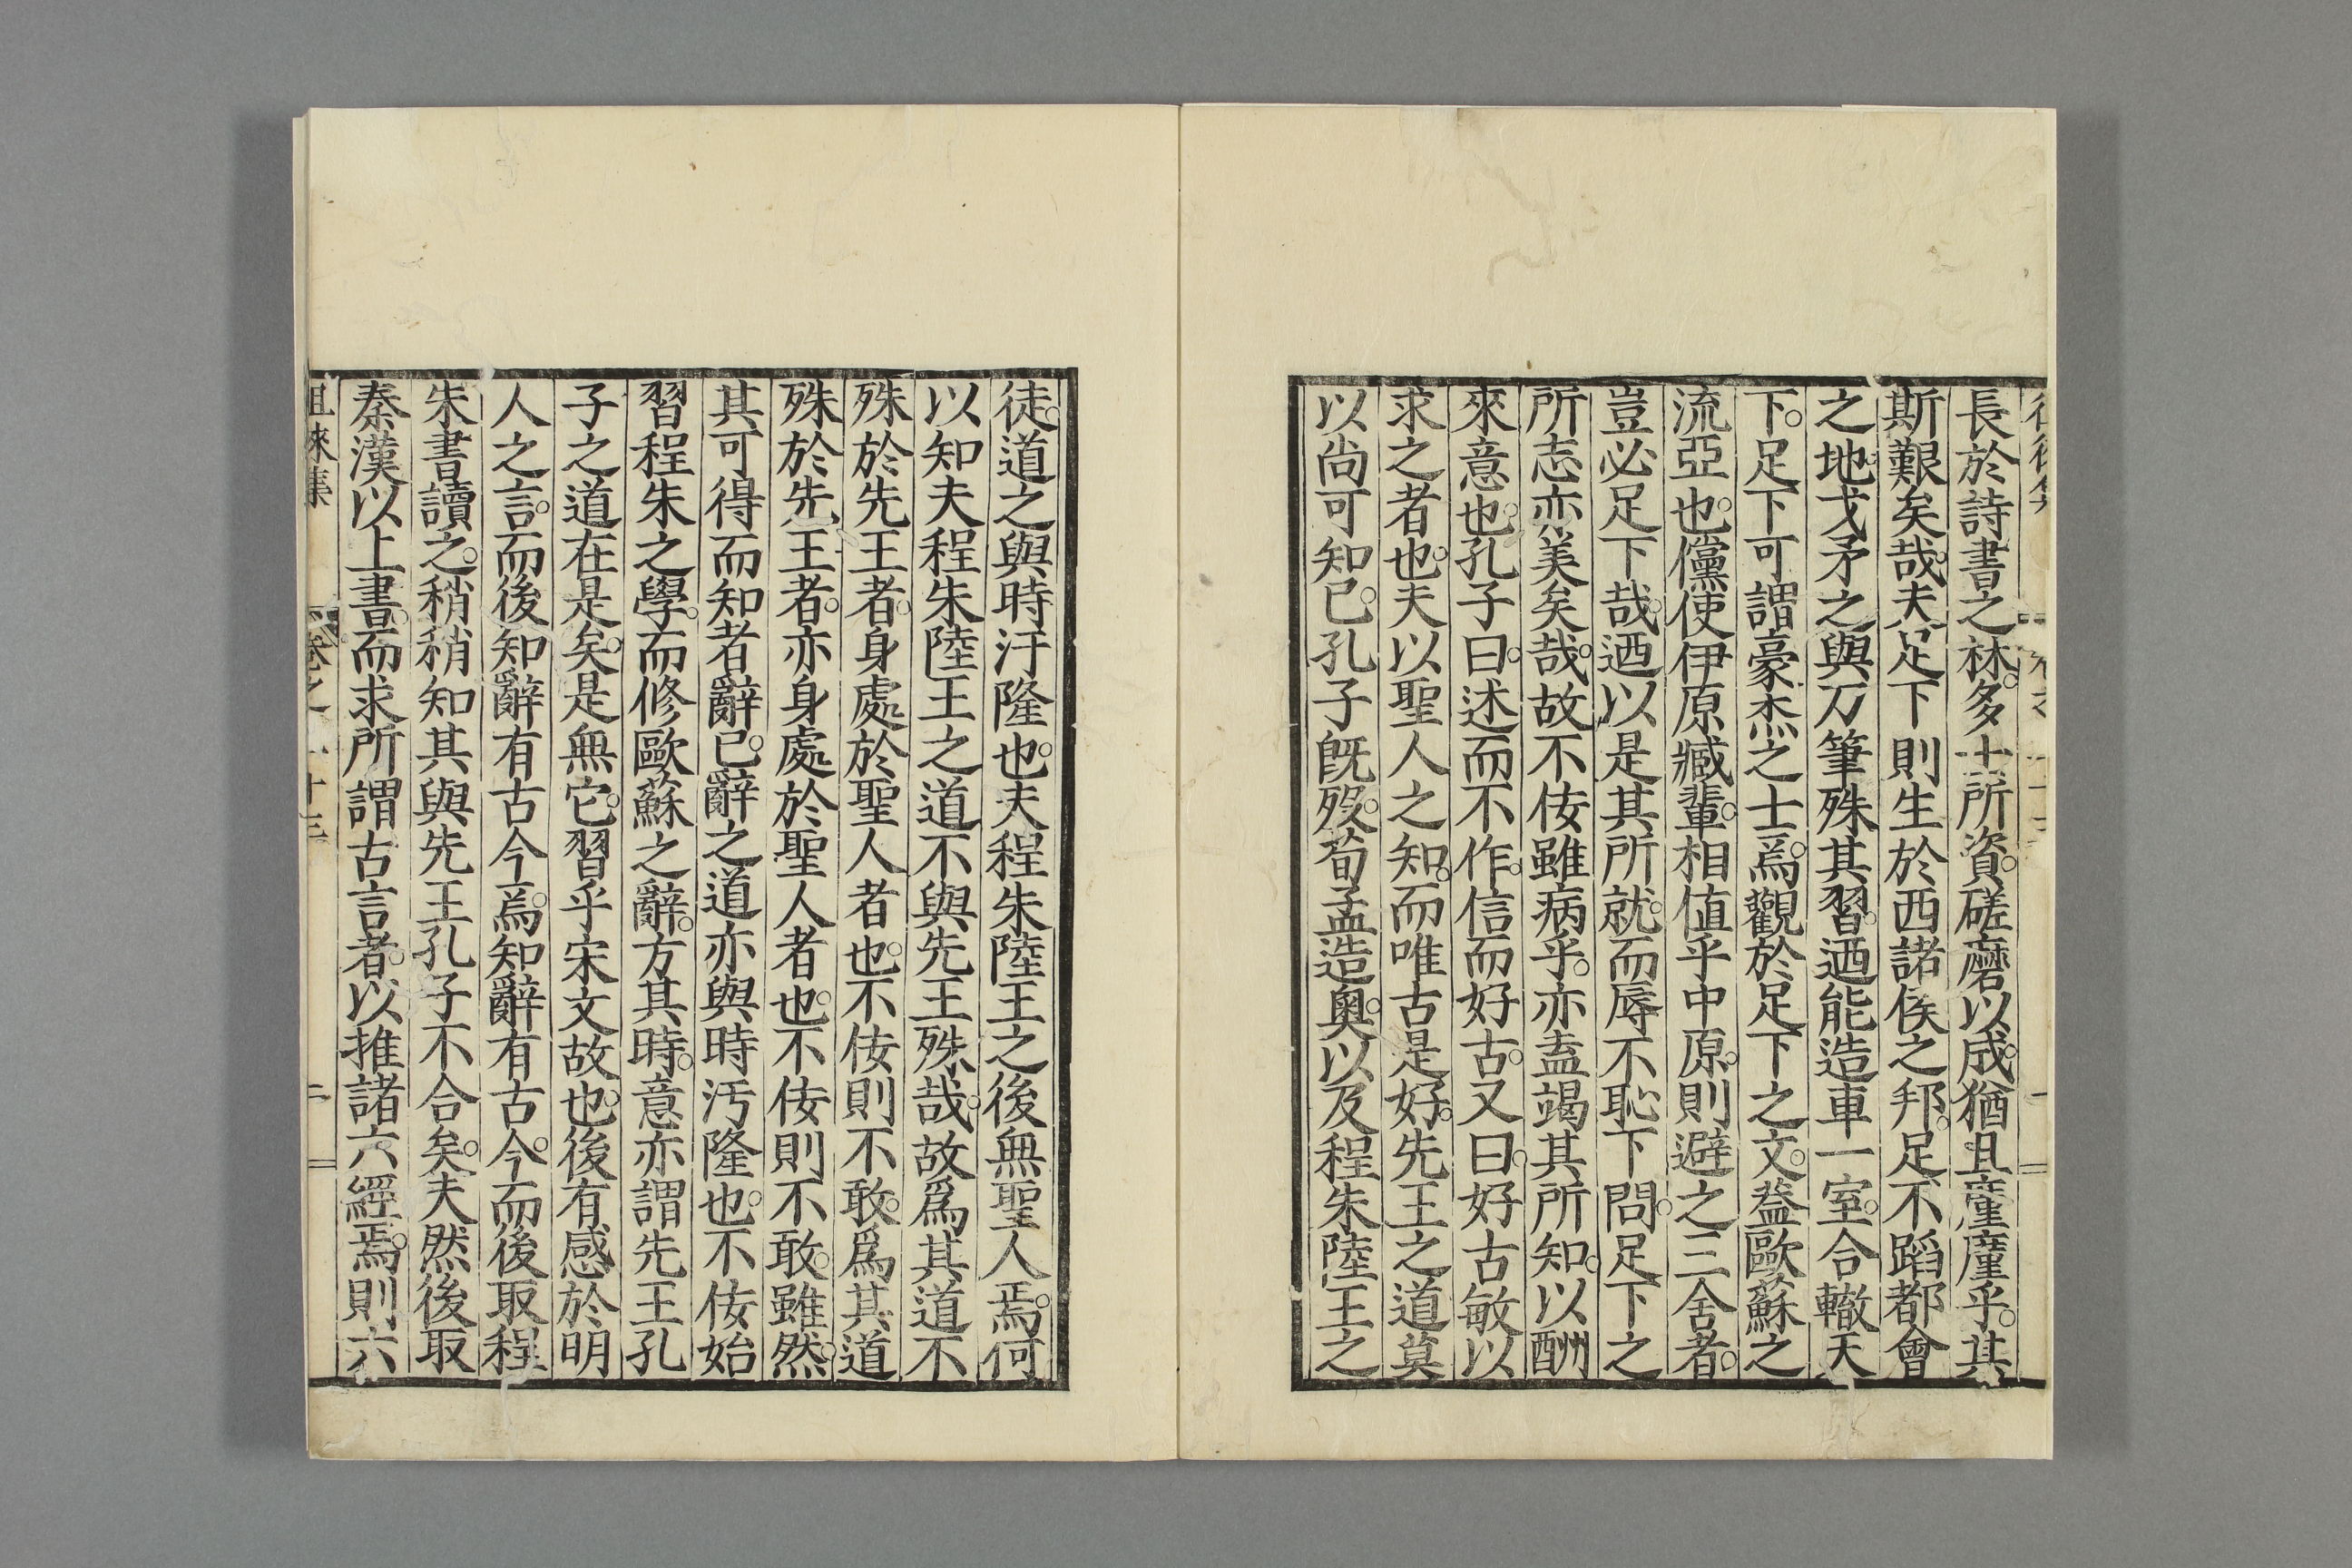 長於詩書之林。多士所資。磋磨以成。猶且廑廑乎。其
斯艱矣哉。夫足下則生於西諸侯之邦。足不蹈都會
之地。戈矛之與刀筆殊其習。迺能造車一室。合轍天
下。足下可謂豪杰之士焉。觀於足下之文。蓋歐蘇之
流亞也。儻使伊原臧輩。相值乎中原。則避之三舍者。
豈必足下哉。迺以是其所就。而辱不恥下問。足下之
所志亦美矣哉。故不佞雖病乎。亦盍竭其所知。以酬
來意也。孔子曰。述而不作。信而好古。又曰。好古敏以
求之者也。夫以聖人之知。而唯古是好。先王之道莫
以尚可知已。孔子旣歿。荀孟造奧。以及程朱陸王之
徒。道之與時汙隆也。夫程朱陸王之後無聖人焉。何
以知夫程朱陸王之道不與先王殊哉。故爲其道不
殊於先王者。身處於聖人者也。不佞則不敢。爲其道
殊於先王者。亦身處於聖人者也。不佞則不敢。雖然。
其可得而知者辭已。辭之道亦與時汚隆也。不佞始
習程朱之學。而修歐蘇之辭。方其時。意亦謂先王孔
子之道在是矣。是無它。習乎宋文故也。後有感於明
人之言。而後知辭有古今焉。知辭有古今。而後取程
朱書讀之。稍稍知其與先王孔子不合矣。夫然後取
秦漢以上書。而求所謂古言者。以推諸六經焉。則六
徂徠集 卷之二十三 二